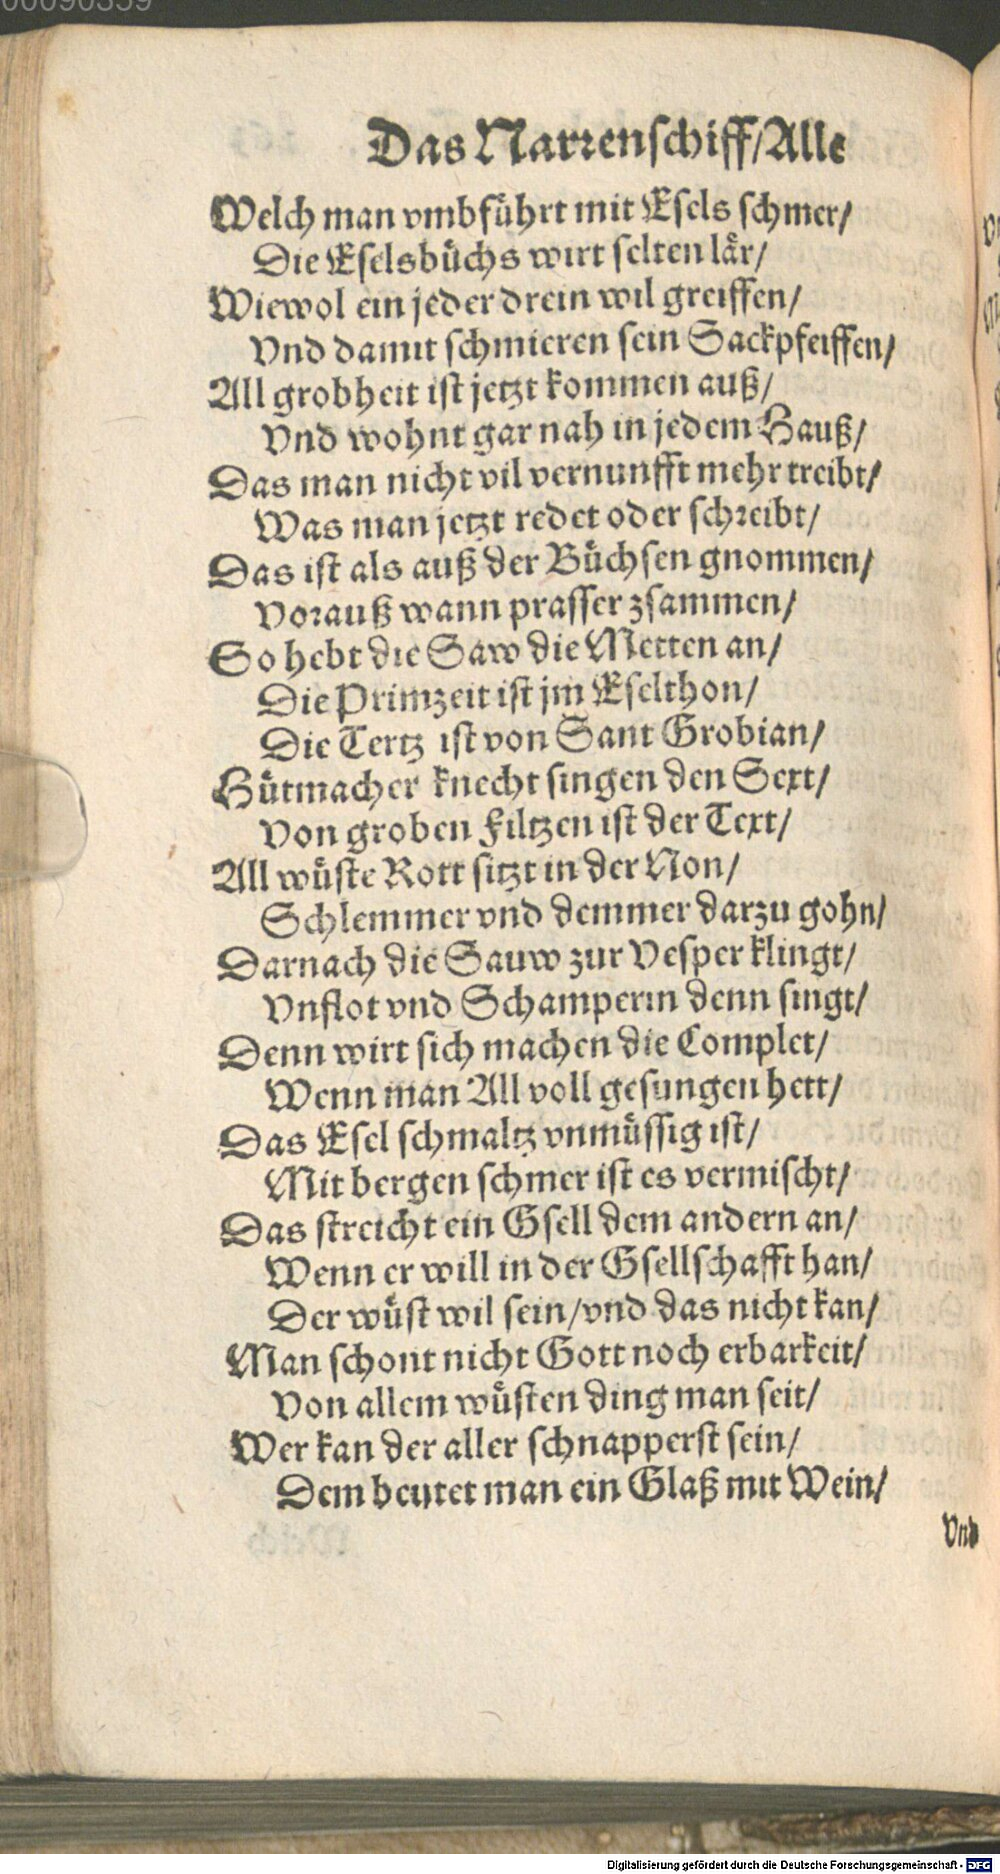 00090359
Das Narrenschiff/Alle
Welch man vmbfuͤhrt mit Esels schmer/
Die Eselsbuͤchs wirt selten laͤr/
Wiewol ein jeder drein wil greiffen/
Vnd damit schmieren sein Sackpfeiffen/
All grobheit ist jetzt kommen auß/
Vnd wohnt gar nah in jedem Hauß/
Das man nicht vil vernunfft mehr treibt/
Was man jetzt redet oder schreibt/
Das ist als auß der Buͤchsen gnommen/
Vorauß wann prasser zsammen/
So hebt die Saw die Metten an/
Die Primzeit ist jm Eselthon/
Die Tertz ist von Sant Grobian/
Huͤtmacher knecht singen den Sext/
Von groben Filtzen ist der Text/
All wuͤste Rott sitzt in der Non/
Schlemmer vnd demmer darzu gohn/
Darnach die Sauw zur Vesper klingt/
Vnflot vnd Schamperin denn singt/
Denn wirt sich machen die Complet/
Wenn man All voll gesungen hett/
Das Esel schmaltz vnmuͤssig ist/
Mit bergen schmer ist es vermischt/
Das streicht ein Gsell dem andern an/
Wenn er will in der Gsellschafft han/
Der wuͤst wil sein/vnd das nicht kan/
Man schont nicht Gott noch erbarkeit/
Von allem wuͤsten ding man seit/
Wer kan der aller schnapperst sein/
Dem beutet man ein Glaß mit Wein/
Vnd
Digitalisierung gefördert durch die Deutsche Forschungsgemeinschaft - DFG